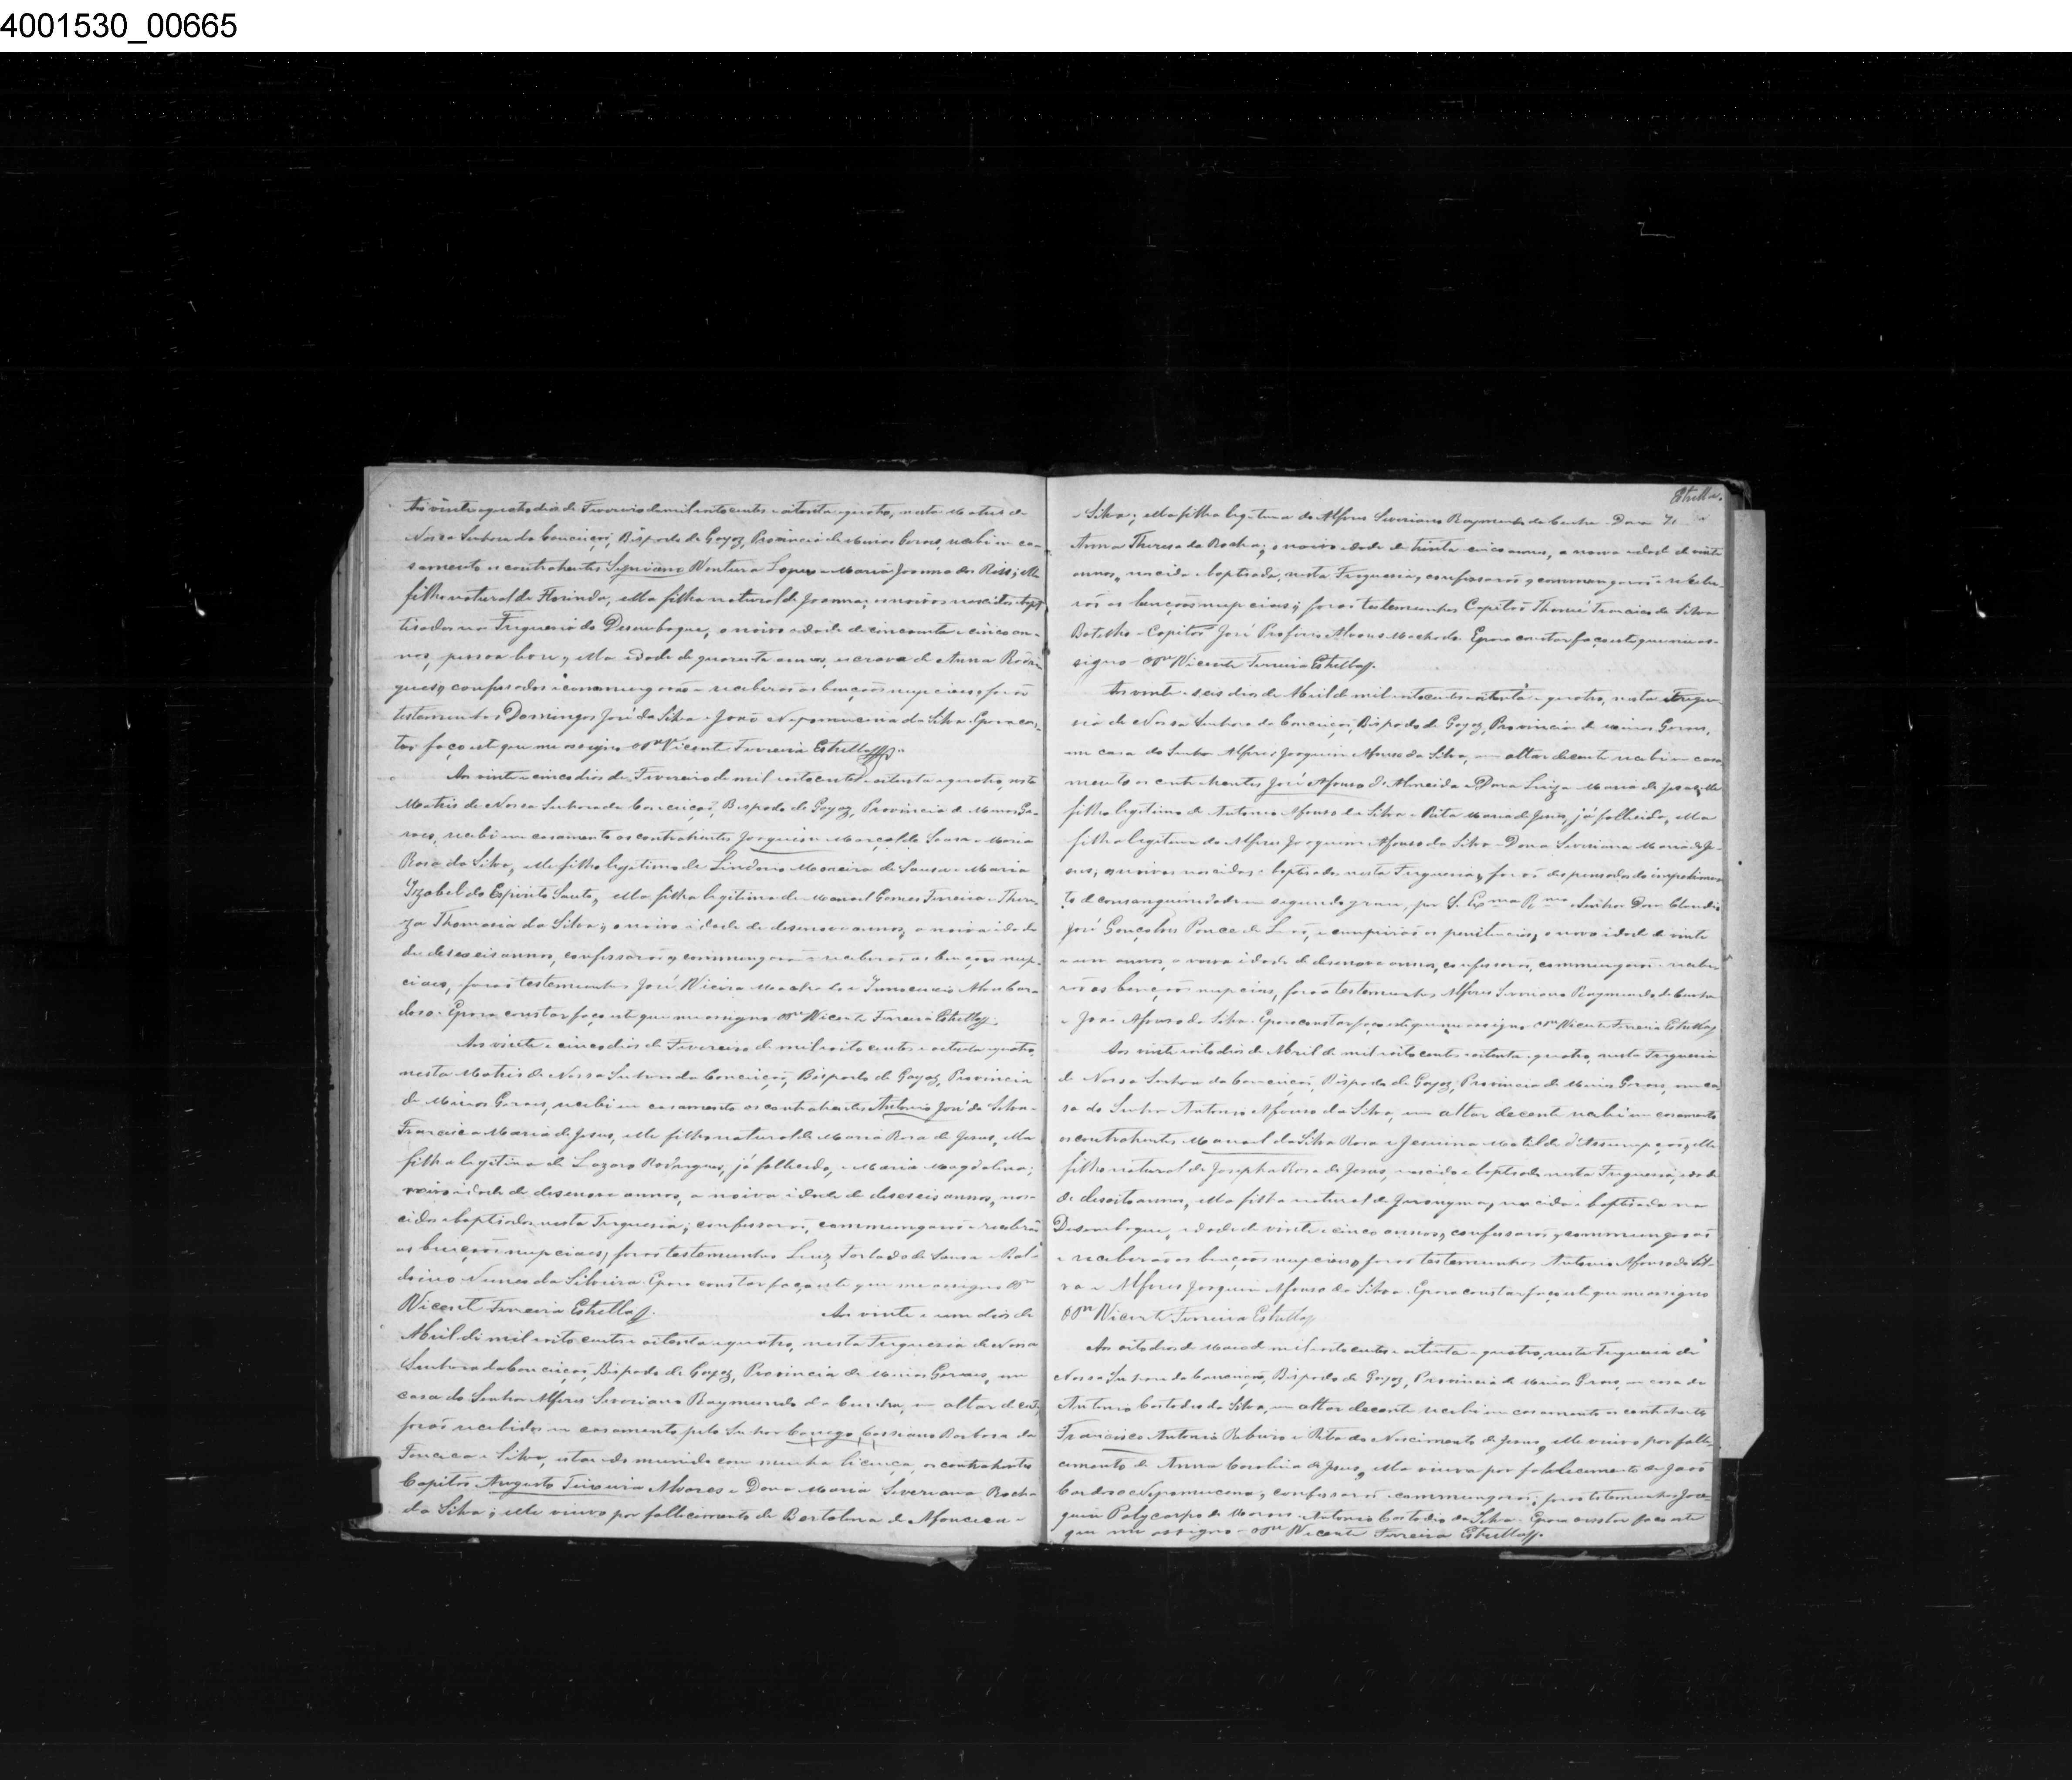 4001530_00665
Aos vinte e quatro dias de Fevereiro de mil oitocentos e oitenta e quatro, nesta Matris de
Nossa Senhora da Conceição, Bispado de Goyaz, Provincia de Minas Geraes, recebi em ca-
samento os contrahentes Ventura Lopes e Maria Joanna dos Reis; elle
filho natural de Florinda, ella filha natural de Joanna; os noivos nascidos e bap-
tisados na Freguesia do Desemboque, o noivo idade de cincoenta e cinco an-
nos, pessoa livre, ella idade de quarenta annos, escrava de Anna Rodri-
gues, confessados e commungarão e receberão as bençãos nupciaes, forão
testemunhas Domingos José da Silva e João Nepomuceno da Silva. E para cons-
tar faço este que me assigno O Pe Vicente Ferreira Estrella
Aos vinte e cinco dias de Fevereiro de mil oitocentos e oitenta e quatro, nesta
Matris de Nossa Senhora da Conceição, Bispado de Goyaz, Provincia de Minas Ge-
raes, recebi em casamento os contrahentes Joaquim Marçal de Sousa e Maria
Rosa da Silva, elle filho legitimo de Lindorio Moreira de Sousa e Maria
Yzabel do Espirito Santo, ella filha legitima de Manoel Gomes Ferreira e There-
za Thomasia da Silva; o noivo idade de desenove annos, a noiva idade
de deseseis annos, confessarão e commungarão e receberão as bençãos nup-
ciaes, forão testemunhas José Vieira Machado e Innocencio
doso. E para constar faço este que me assigno O Pe Vicente Ferreira Estrella
Aos vinte e cinco dias de Fevereiro de mil oitocentos e oitenta e quatro,
nesta Matris de Nossa Senhora da Conceição, Bispado de Goyaz, Provincia
de Minas Geraes, recebi em casamento os contrahentes Antonio José da Silva e
Francisca Maria de Jesus, elle filho natural de Maria Rosa de Jesus, ella
filha legitima de Lazaro Rodrigues, já fallecido, e Maria Magdalena;
noivo idade de desenove annos, a noiva idade de deseseis annos, nas-
cidos e baptisados nesta Freguesia; confessarão, commungarão e receberão
as bençãos nupciaes, forão testemunhas Luiz Fortado de Sousa e Bal-
doino Nunes da Silveira. E para constar faço este que me assigno O Pe
Vicente Ferreira Estrella. Aos vinte e um dias de
Abril de mil oitocentos e oitenta e quatro, nesta Freguesia de Nossa
Senhora da Conceição, Bispado de Goyaz, Provincia de Minas Geraes, em
casa do Senhor Alferes Severiano Raymundo da Cunha, em altar decente,
forão recebidos em casamento pelo Senhor Conego Cassiano Barbosa da
Fonceca e Silva, estando munido com minha licença, os contrahentes
Capitão Augusto Teixeira Alvares e Dona Maria Severiana Rocha
da Silva; elle viuvo por fallecimento de Bertolina de Affonceca e
Estrella.
Silva; ella filha legitima do Alferes Severiano Raymundo da Cunha e Dona
Anna Theresa da Rocha; o noivo idade de trinta e cinco annos, a noiva idade de vinte
annos, nascida e baptisada nesta Freguesia, confessarão e commungarão e recebe-
rão as bençãos nupciaes; forão testemunhas Capitão Thomé Francisco da Silva
Botelho e Capitão José Porfirio Alvares Machado. E para constar faço este que me as-
signo O Pe Vicente Ferreira Estrella.
Aos vinte e seis dias de Abril de mil oitocentos e oitenta e quatro, nesta Fregue-
sia de Nossa Senhora da Conceição, Bispado de Goyaz, Provincia de Minas Geraes,
em casa do Senhor Alferes Joaquim Afonso da Silva, em altar decente recebi em casa-
mento os contrahentes José Afonso d'Almeida e Dona Luiza Maria de Jesus, elle
filho legitimo de Antonio Afonso da Silva e Rita Maria de Jesus, já fallecida, ella
filha legitima do Alferes Joaquim Afonso da Silva e Dona Severiana Maria de Je-
sus, os noivos nascidos e baptisados nesta Freguesia, forão dispensados do impedimen-
to de consanguinidade em segundo grau, por S. Exma Rma Senhor Dom Claudio
José Gonçalves Ponce de Leão, e cumprirão as penitencias, o noivo idade de vinte
e um annos, a noiva idade de desenove annos, confessarão, commungarão e recebe-
rão as bençãos nupciaes, forão testemunhas Alferes Severiano Raymundo da Cunha
e João Afonso da Silva. E para constar faço este que me assigno O Pe Vicente Ferreira Estrella
Aos vinte e oito dias de Abril de mil oitocentos e oitenta e quatro, nesta Freguesia
de Nossa Senhora da Conceição, Bispado de Goyaz, Provincia de Minas Geraes, em ca-
sa do Senhor Antonio Afonso da Silva, em altar decente recebi em casamento
os contrahentes Manoel da Silva Rosa e Jesuina Matilde d'Assumpção, elle
filho natural de Josepha Rosa de Jesus, nascido e baptisado nesta Freguesia, idade
de desoito annos, ella filha natural de Jeronyma, nascida e baptisada no
Desemboque, idade de vinte e cinco annos, confessarão e commungarão
e receberão as bençãos nupciaes, forão testemunhas Antonio Afonso da Sil-
va e Alferes Joaquim Afonso da Silva. E para constar faço este que me assigno
O Pe Vicente Ferreira Estrella
Aos oito dias de Maio de mil oitocentos e oitenta e quatro, nesta Freguesia de
Nossa Senhora da Conceição, Bispado de Goyaz, Provincia de Minas Geraes, em casa de
Antonio Custodio da Silva, em altar decente recebi em casamento os contrahentes
Francisco Antonio Ribeiro e Rita do Nascimento de Jesus, elle viuvo por falle-
cimento de Anna Carolina de Jesus, ella viuva por fallecimento de João
Cardoso Nepomuceno, confessarão e commungarão; forão testemunhas Joa-
quim Polycarpo de Moraes e Antonio Custodio da Silva. E para constar faço este
que me assigno O Pe Vicente Ferreira Estrella.